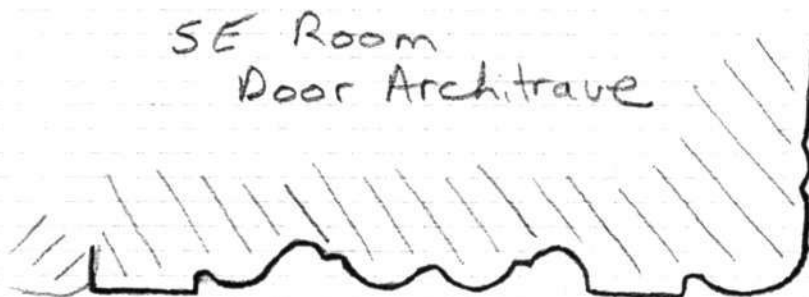 SE Room
Door Architrave